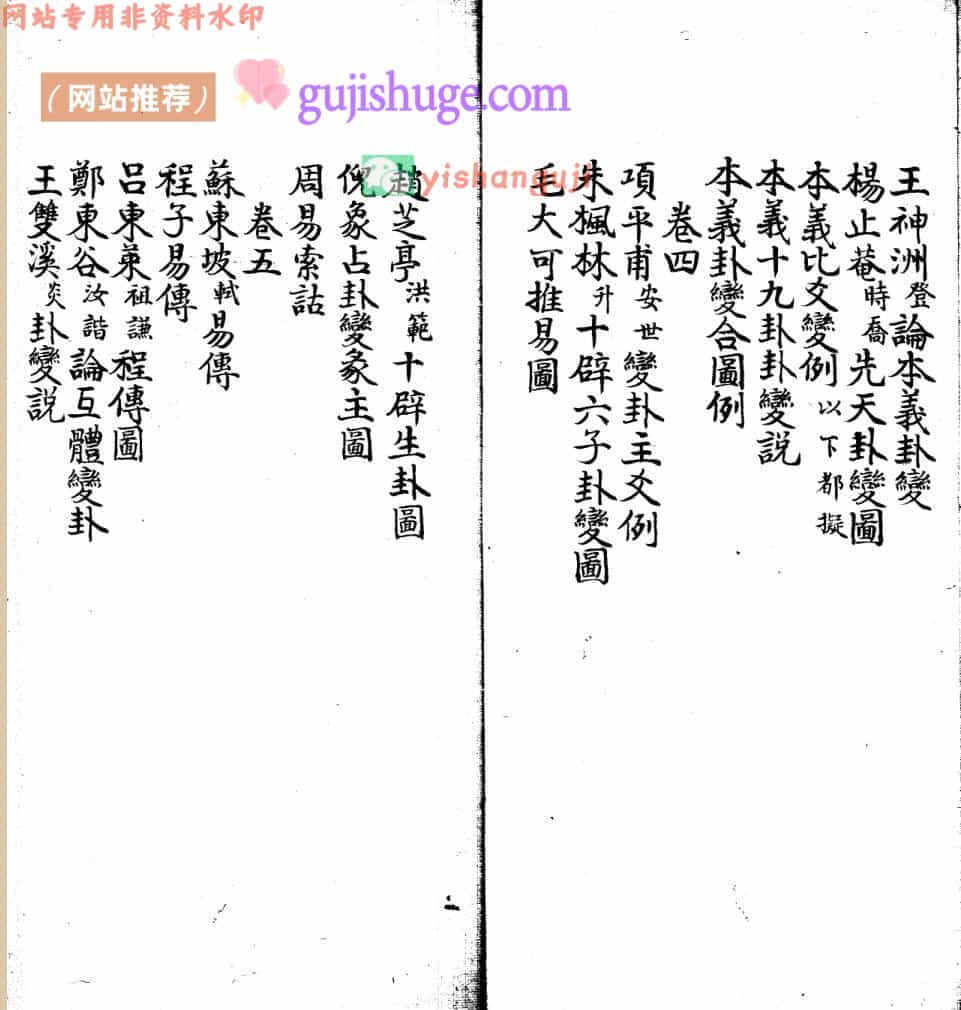 网站专用非资料水印
（网站推荐）
gujishuge.com
yishanguji
王神洲登論本義卦變
楊止菴時喬先天卦變圖
本義比爻變例以下都擬
本義十九卦卦變説
本義卦變合圖例
卷四
項平甫安世變卦主爻例
朱楓林升十辟六子卦變圖
毛大可推易圖
趙芝亭洪範十辟生卦圖
倪象占卦變彖主圖
周易索詁
卷五
蘇東坡軾易傳
程子易傳
吕東萊祖謙程傳圖
鄭東谷汝諧論互體變卦
王雙溪炎卦變説